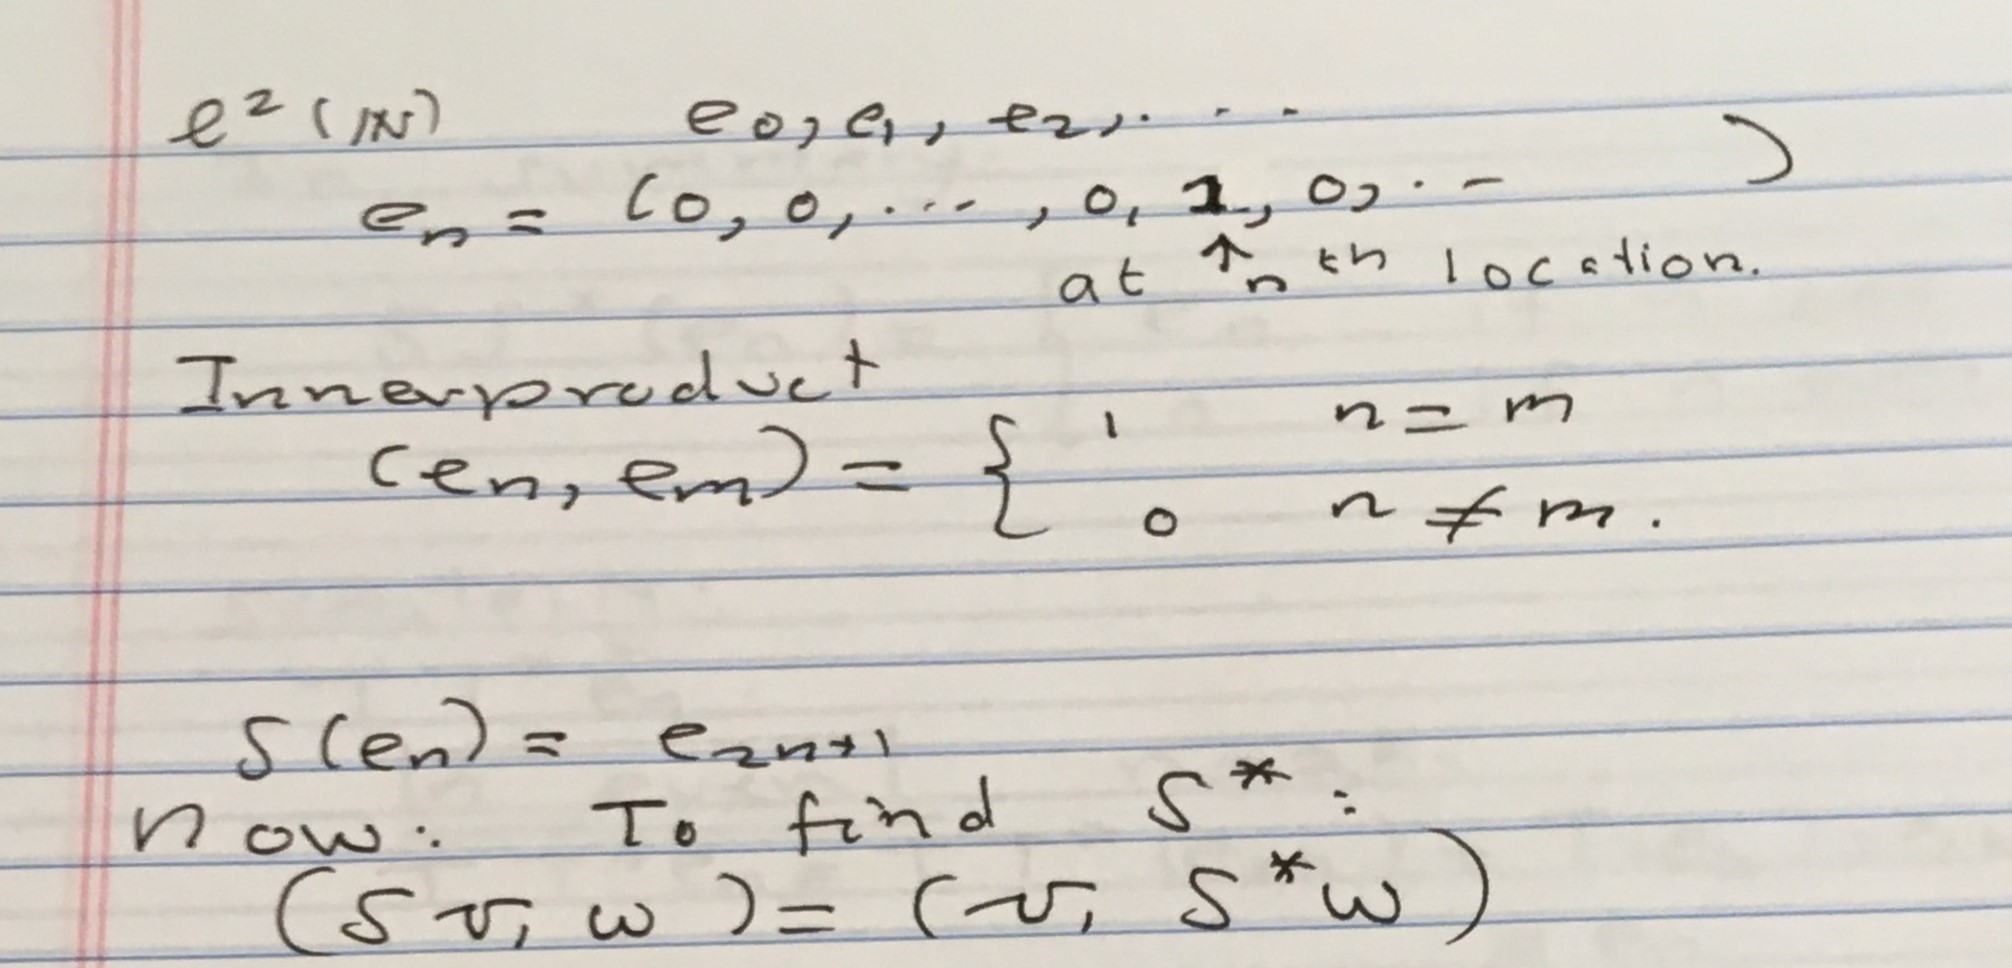 ℓ² (ℕ) e₀, e₁, e₂, . . .
eₙ = (0, 0, ..., 0, 1, 0, . - )
at ↑ n th location.
Innerproduct
(eₙ, eₘ) = { 1 n = m
0 n ≠ m.
S(eₙ) = e₂ₙ₊₁
now: To find S* :
(Sv, w) = (v, S*w)